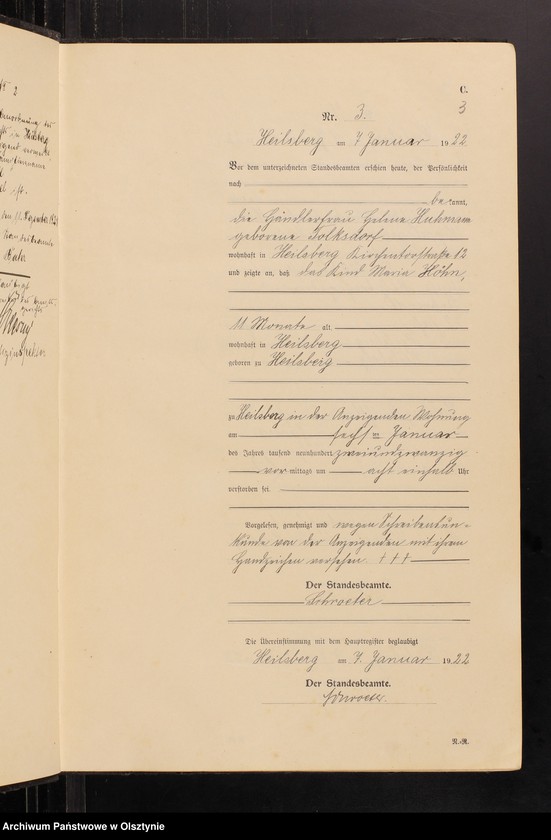 № 2
C.
3
Nr. 3.
Heilsberg am 7 Januar 1922
Vor dem unterzeichneten Standesbeamten erschien heute, der Persönlichkeit
nach
be kannt,
die Händlerfrau Helene Huhmann
geborene Tolksdorf
wohnhaft in Heilsberg Kirchentorstraße 12
und zeigte an, daß das Kind Maria Höhn,
11 Monate alt,
wohnhaft in Heilsberg
geboren zu Heilsberg
zu Heilsberg in der Anzeigenden Wohnung
am sechsten Januar
des Jahres tausend neunhundert zweiundzwanzig
vor mittags um acht einhalb Uhr
verstorben sei.
Vorgelesen, genehmigt und wegen Schreibensun-
kunde von der Anzeigenden mit ihrem
Handzeichen versehen + + +
Der Standesbeamte.
Schroeter
Die Übereinstimmung mit dem Hauptregister beglaubigt
Heilsberg am 7. Januar 1922
Der Standesbeamte.
Schroeter.
R.-R.
Archiwum Państwowe w Olsztynie